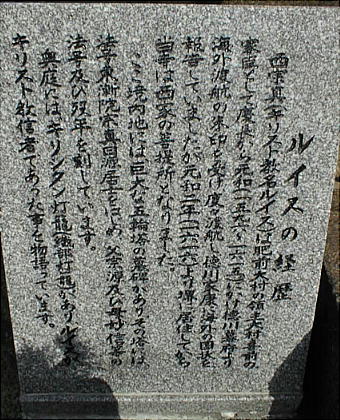 ルイスの経歴
西宗真(キリスト教名ルイス)は肥前大村の領主大村喜前の
家臣として慶長から元和(一五九六〜一六一五)になり徳川幕府より
海外渡航の朱印を受け度々渡航し徳川家康に海外の国状を
報告していましたが元和二年(一六一六)より堺に居住してから
当寺は西家の菩提所となりました。
ここ境内墓地には巨大な五輪塔の墓碑がありその塔には
法字東漸院宗真日源居士をはじめ父宗源及び母妙信等の
法号及び歿年を刻しています。
奥庭にはキリシタン灯籠(織部灯籠)がありルイスが
キリスト教信者であった事を物語っています。